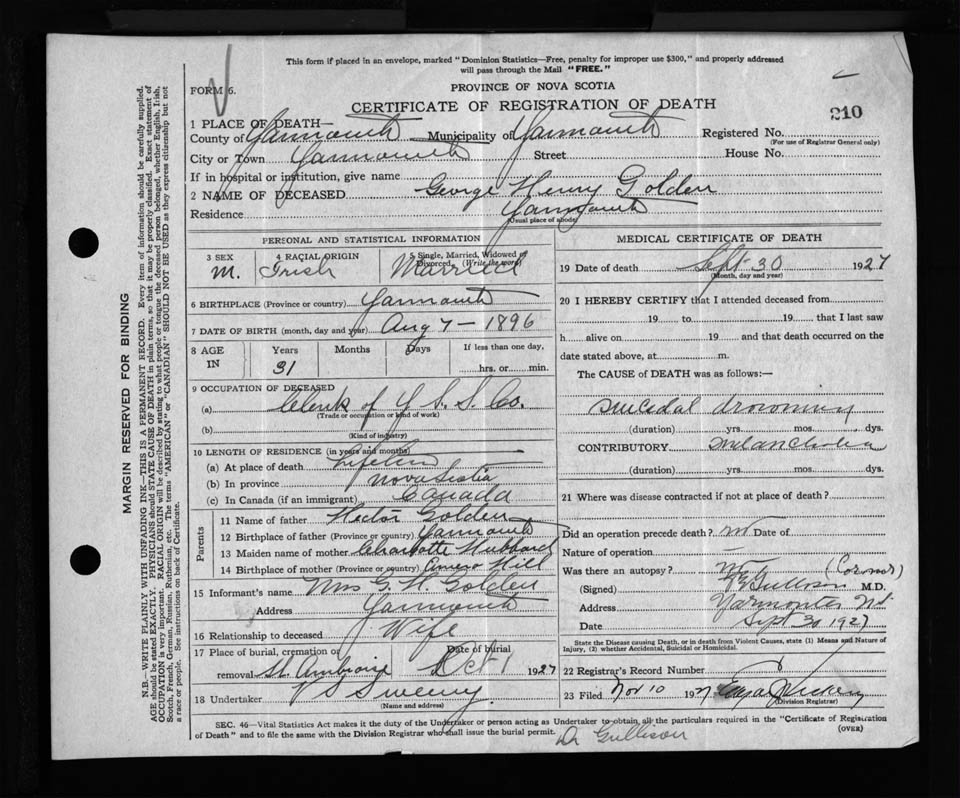 This form if placed in an envelope, marked "Dominion Statistics—Free, penalty for improper use $300," and properly addressed
will pass through the Mail "FREE."
FORM 6.
PROVINCE OF NOVA SCOTIA
CERTIFICATE OF REGISTRATION OF DEATH
210
1 PLACE OF DEATH—
County of Yarmouth Municipality of Yarmouth Registered No.
(For use of Registrar General only)
City or Town Yarmouth Street House No.
If in hospital or institution, give name
2 NAME OF DECEASED George Henry Golden
Residence Yarmouth
(Usual place of abode)
PERSONAL AND STATISTICAL INFORMATION
3 SEX 4 RACIAL ORIGIN 5 Single, Married, Widowed or Divorced. (Write the word)
M. Irish Married
6 BIRTHPLACE (Province or country) Yarmouth
7 DATE OF BIRTH (month, day and year) Aug 7 - 1896
8 AGE IN Years Months Days If less than one day,
31 hrs. or min.
9 OCCUPATION OF DECEASED
(a) Clerk of Y. S. S. Co.
(Trade or occupation or kind of work)
(b)
(Kind of industry)
10 LENGTH OF RESIDENCE (in years and months)
(a) At place of death Lifetime
(b) In province Nova Scotia
(c) In Canada (if an immigrant) Canada
Parents
11 Name of father Hector Golden
12 Birthplace of father (Province or country) Yarmouth
13 Maiden name of mother Charlotte Hubbard
14 Birthplace of mother (Province or country) Hill
15 Informant's name Mrs G. H. Golden
Address Yarmouth
16 Relationship to deceased Wife
17 Place of burial, cremation or removal St. Ambroise Date of burial Oct 1 1927
18 Undertaker V S Sweeny
(Name and address)
MEDICAL CERTIFICATE OF DEATH
19 Date of death Sept 30 1927
(Month, day and year)
20 I HEREBY CERTIFY that I attended deceased from
19 to 19 that I last saw
h alive on 19 and that death occurred on the
date stated above, at m.
The CAUSE of DEATH was as follows:—
Suicidal drowning
(duration) yrs. mos. dys.
CONTRIBUTORY Melancholia
(duration) yrs. mos. dys.
21 Where was disease contracted if not at place of death?
Did an operation precede death? no Date of
Nature of operation
Was there an autopsy? no (Coroner)
(Signed) Gullison M.D.
Address Yarmouth N.S.
Date Sept 30 1927
State the Disease causing Death, or in death from Violent Causes, state (1) Means and Nature of
Injury, (2) whether Accidental, Suicidal or Homicidal.
22 Registrar's Record Number
23 Filed Nov 10 1927
(Division Registrar)
SEC. 46—Vital Statistics Act makes it the duty of the Undertaker or person acting as Undertaker to obtain, all the particulars required in the "Certificate of Registration
of Death" and to file the same with the Division Registrar who shall issue the burial permit.
(OVER)
Dr Gullison
MARGIN RESERVED FOR BINDING
N.B.—WRITE PLAINLY WITH UNFADING INK—THIS IS A PERMANENT RECORD. Every item of information should be carefully supplied.
AGE should be stated EXACTLY. PHYSICIANS should STATE CAUSE OF DEATH in plain terms, so that it may be properly classified. Exact statement of
OCCUPATION is very important. RACIAL ORIGIN will be described by stating to what people or tongue the deceased person belonged, whether English, Irish,
Scotch, French, German, Russian, Ruthenian, etc. The terms "AMERICAN" or "CANADIAN" SHOULD NOT BE USED as they express citizenship but not
a race or people. See instructions on back of Certificate.